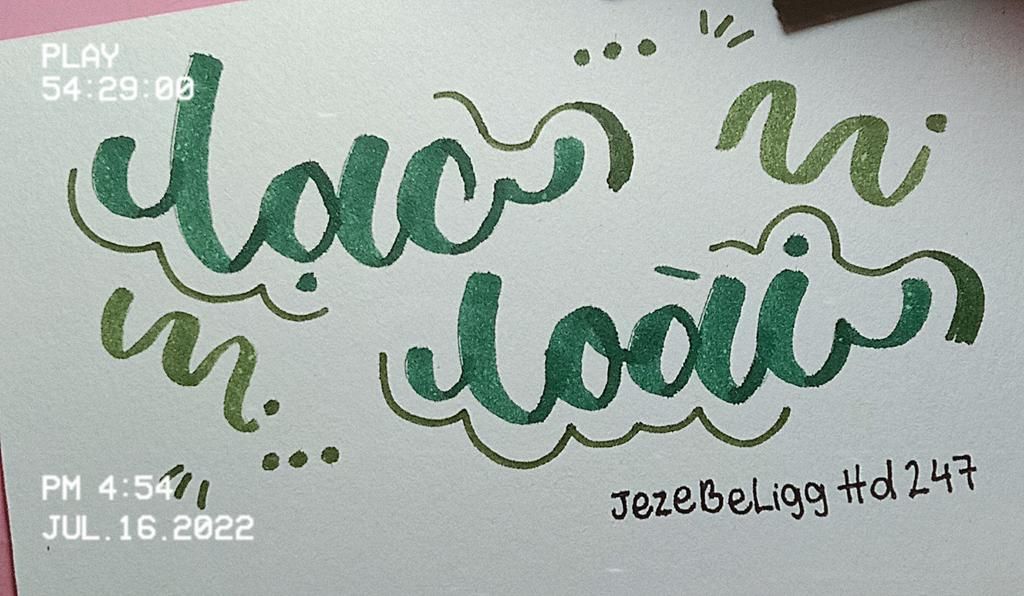 PLAY
54:29:00
lạc
loài
JezeBeLigg Hd 247
PM 4:54
JUL.16.2022